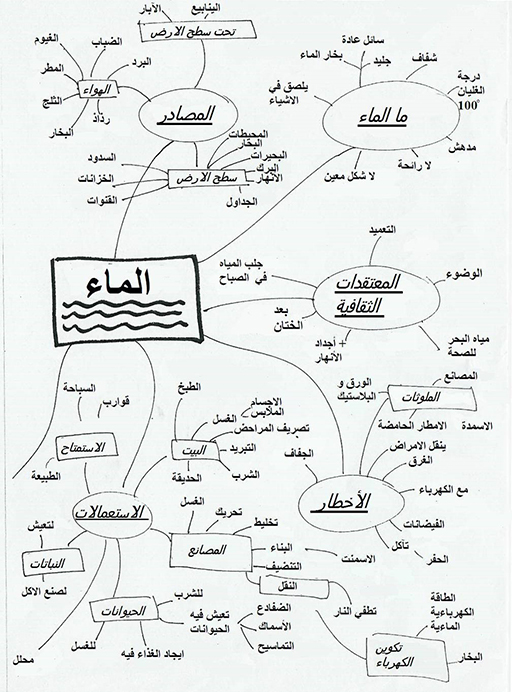 الآبار
الينابيع
تحت سطح الارض
الغيوم
الضباب
المطر
البرد
الهواء
الثلج
رذاذ
البخار
المصادر
المحيطات
البحار
البحيرات
البرك
الأنهار
الجداول
سطح الارض
السدود
الخزانات
القنوات
سائل عادة
جليد
بخار الماء
شفاف
درجة
الغليان
100°
يلصق في
الاشياء
ما الماء
مدهش
لا رائحة
لا شكل معين
الماء
التعميد
جلب المياه
في الصباح
المعتقدات
الثقافية
الوضوء
بعد
الختان
+ أجداد
الأنهار
مياه البحر
للصحة
المصانع
الورق و
البلاستيك
الملوثات
الامطار الحامضة
الاسمدة
ينقل الامراض
الغرق
الجفاف
الأخطار
مع الكهرباء
الفيضانات
تآكل
الحفر
السباحة
قوارب
الاستمتاع
الطبيعة
الطبخ
الاجسام
الملابس
الغسل
تصريف المراحض
البيت
التبريد
الشرب
الحديقة
الاستعمالات
الغسل
تحريك
تخليط
المصانع
البناء
الاسمنت
التنضيف
النقل
تطفي النار
لتعيش
النباتات
لصنع الاكل
محلل
الحيوانات
للشرب
تعيش فيه
الحيوانات
الضفادع
الأسماك
التماسيح
للغسل
ايجاد الغذاء فيه
الطاقة
الكهربائية
المائية
تكوين
الكهرباء
البخار